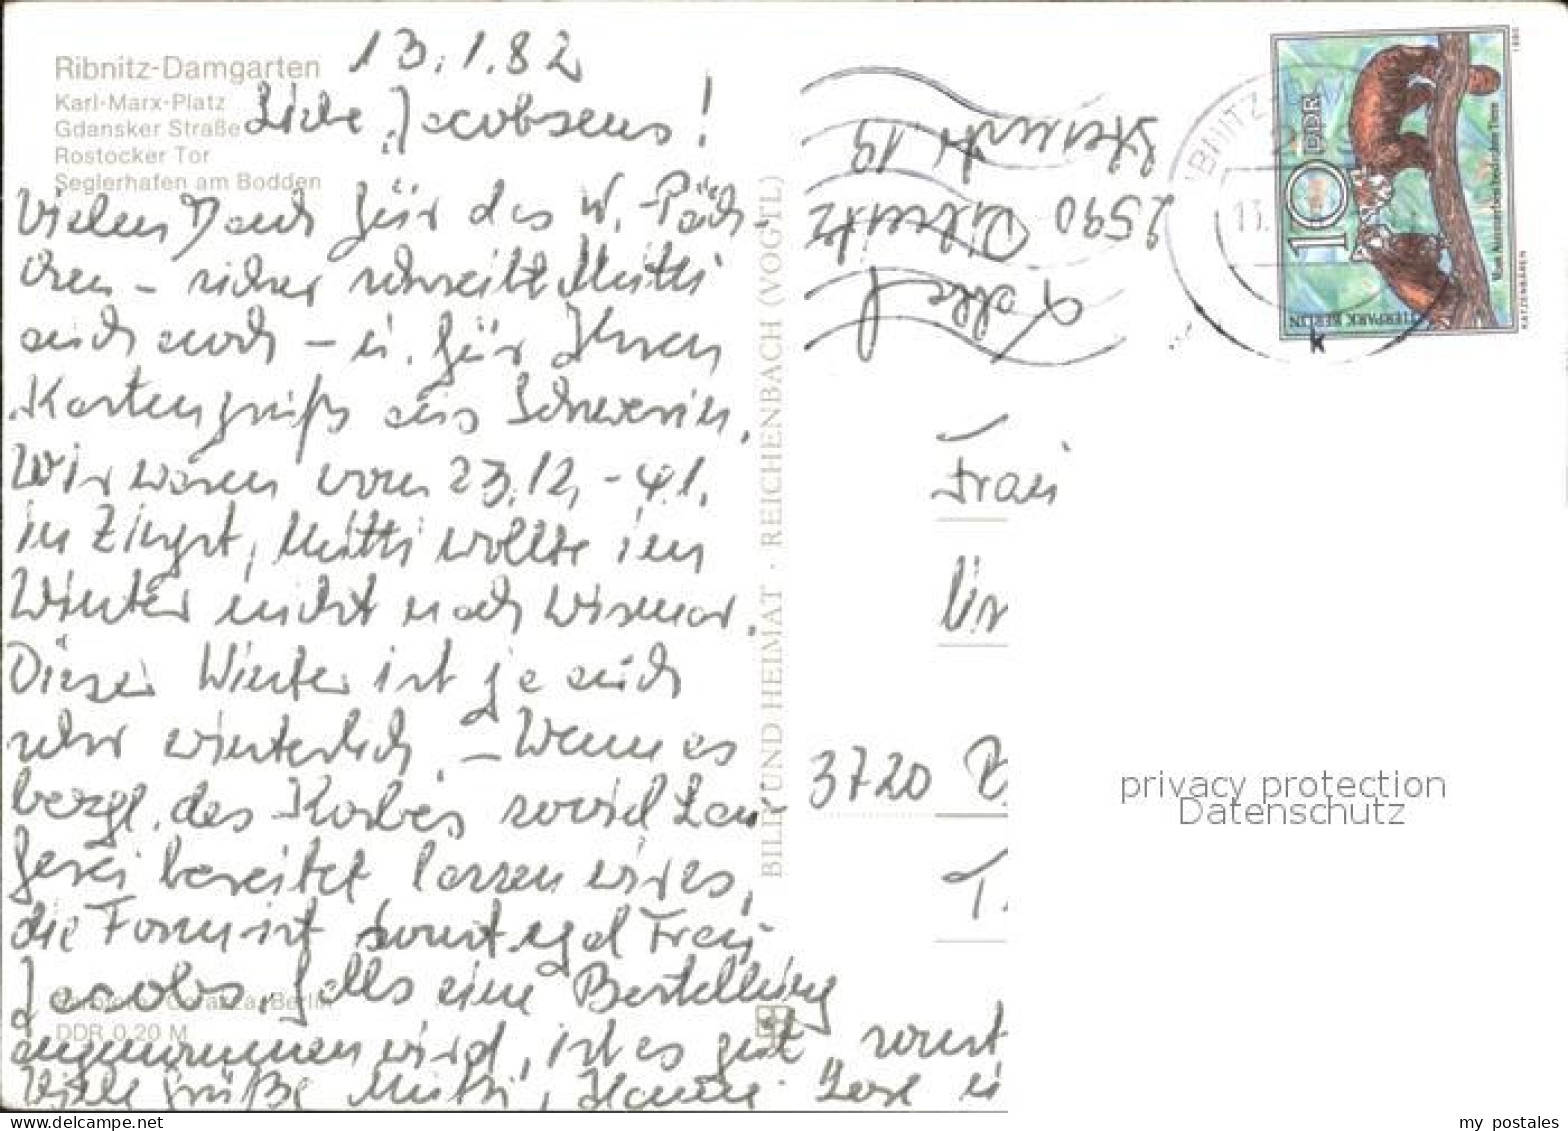 Ribnitz-Damgarten
Karl-Marx-Platz
Gdansker Straße
Rostocker Tor
Seglerhafen am Bodden
13.1.82
Liebe Jacobsens!
Vielen Dank für das W.-Päck-
chen – sicher schreibt Mutti
auch noch – u. für Ihren
Kartengruß aus Schwerin.
Wir waren vom 23.12. - 4.1.
in Zingst, Mutti wollte im
Winter nicht nach Wismar.
Dieser Winter ist ja auch
sehr winterlich. – Wenn es
bezgl. des Korbes soviel
bereitet lassen wir es,
die Form ist sonst egal Frau
Jacobs. Falls eine Bestellung
angenommen wird, ist es gut, sonst
Viele Grüße Mutti,
Berlin
DDR 0,20 M
BILD UND HEIMAT · REICHENBACH (VOGTL)
19
2590 Ribnitz
Frau
3720
RIBNITZ
11.
k
10 DDR
TIERPARK BERLIN
KATZENBÄREN
1980
privacy protection
Datenschutz
my postales